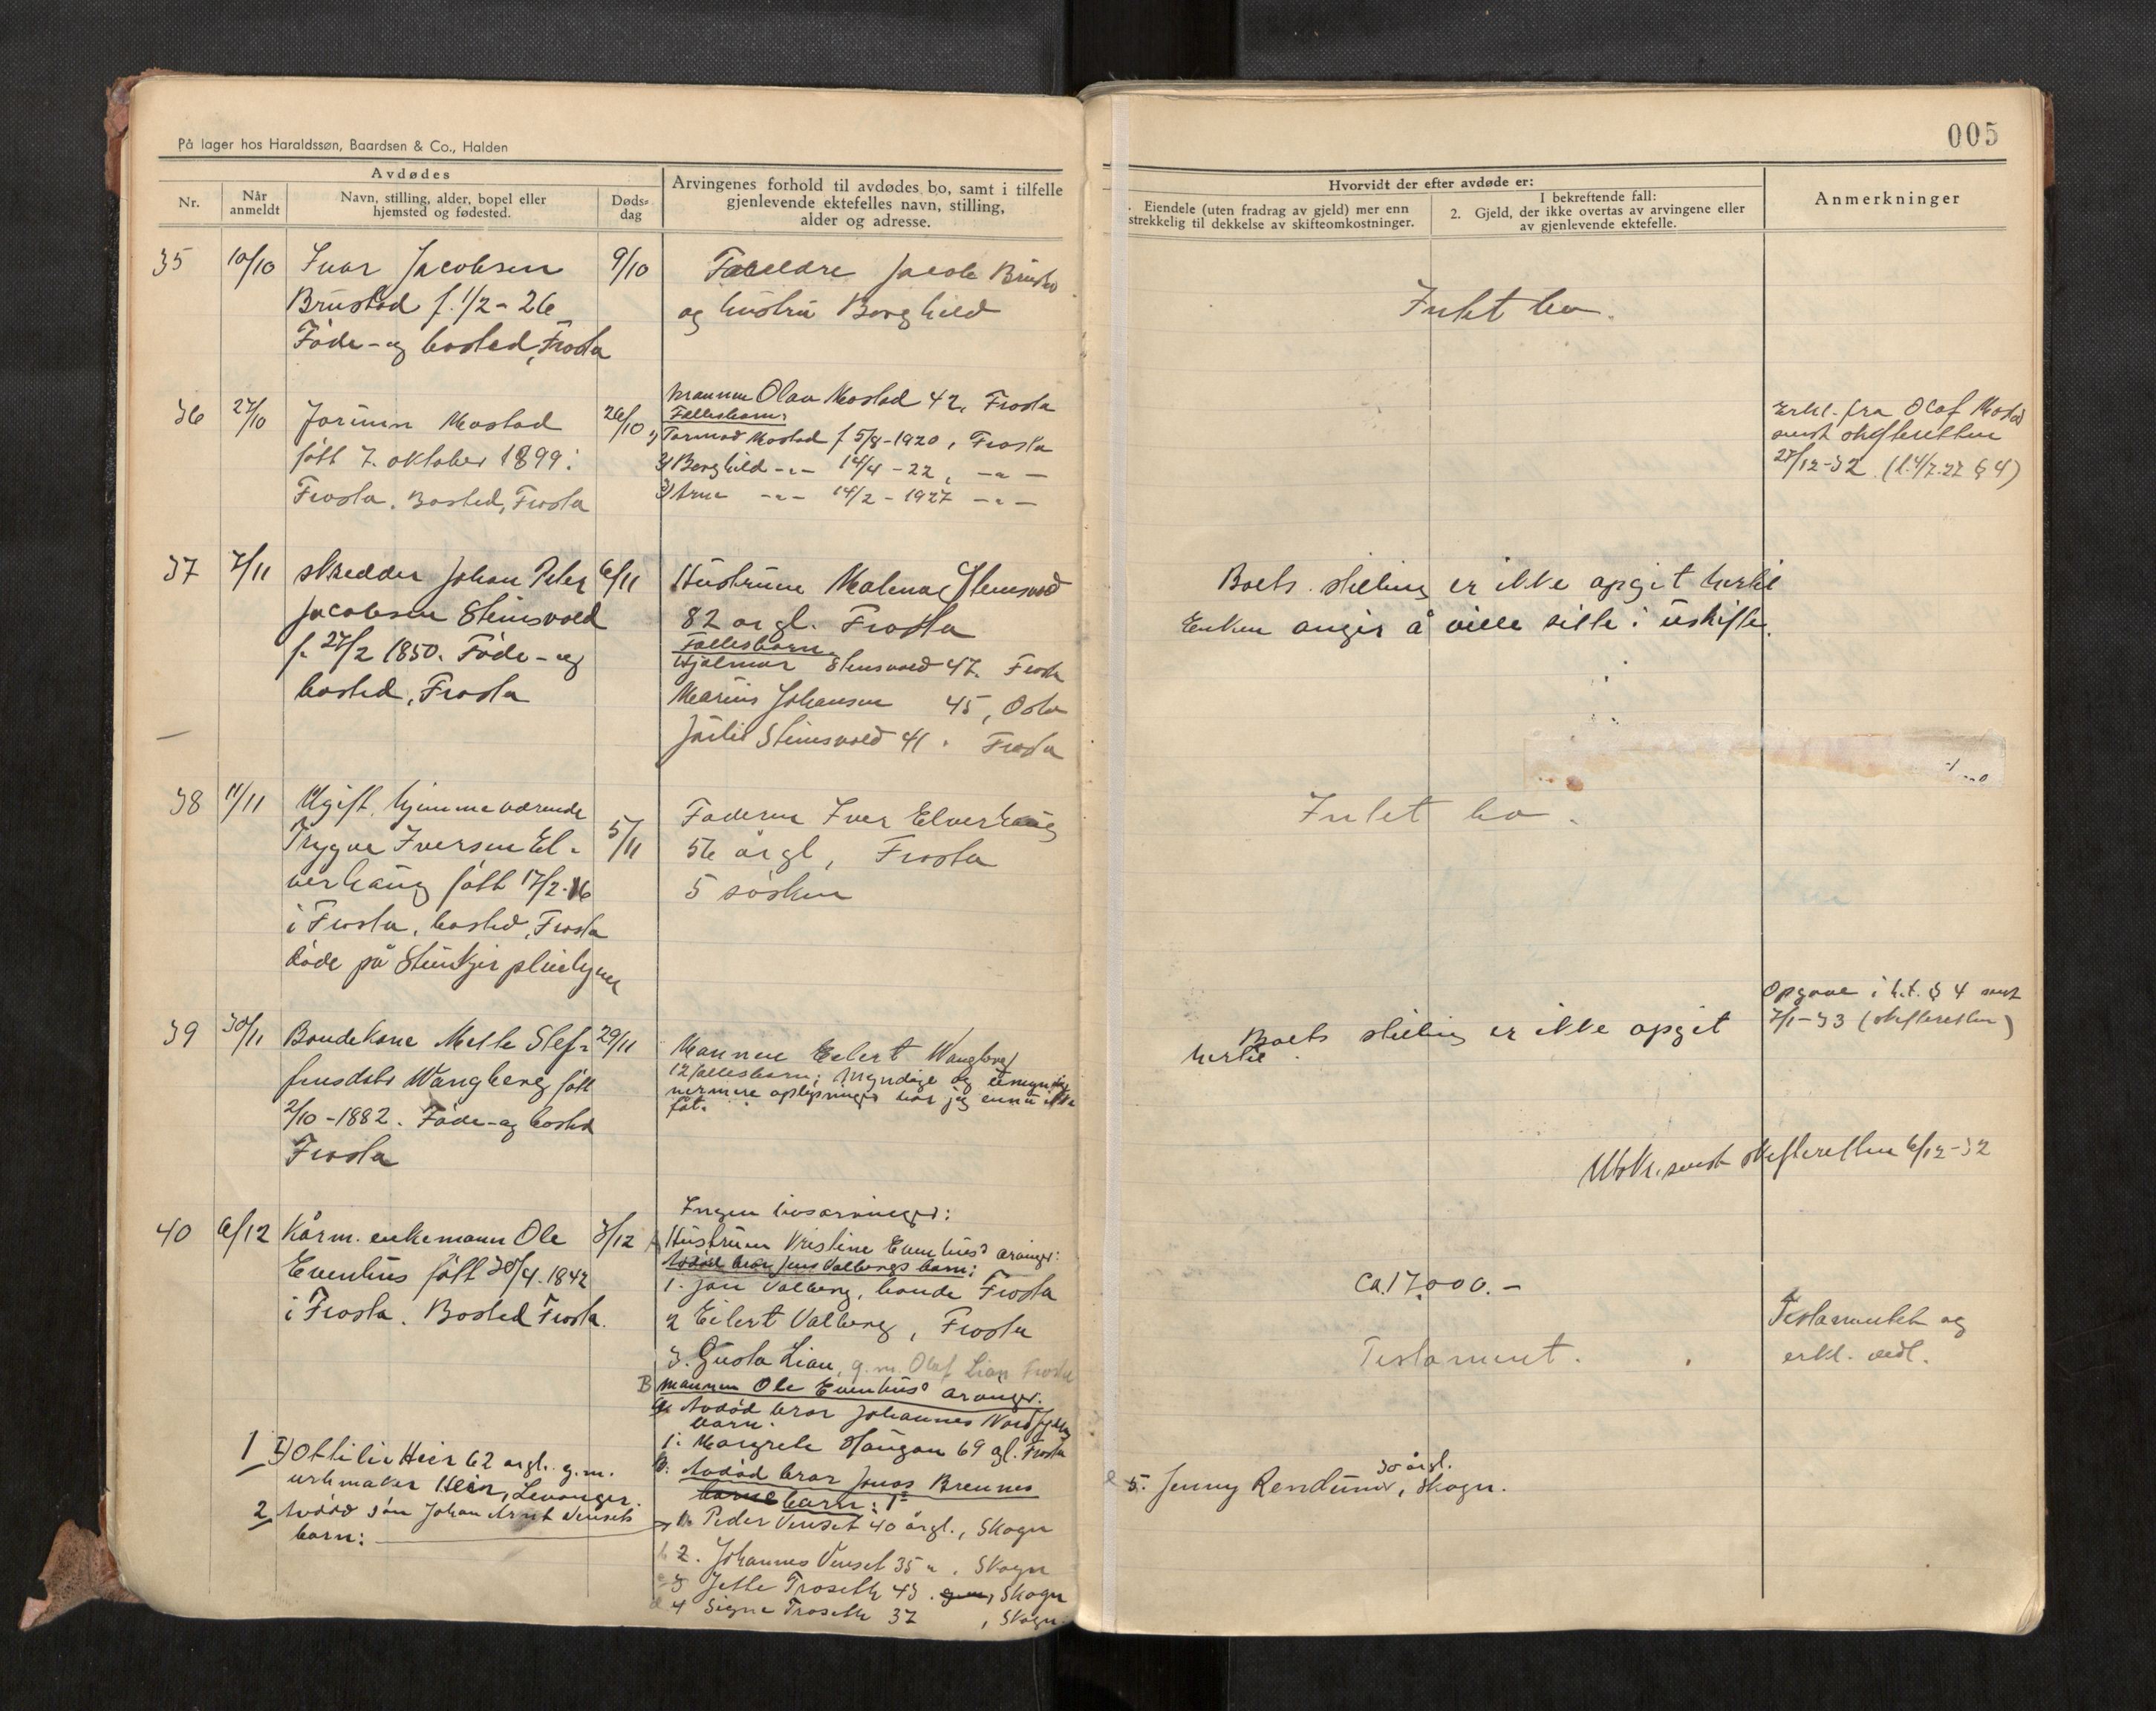 På lager hos Haraldssøn, Baardsen & Co., Halden
005
Avdødes
Nr.
Når anmeldt
Navn, stilling, alder, bopel eller
hjemsted og fødested.
Døds-
dag
Arvingenes forhold til avdødes bo, samt i tilfelle
gjenlevende ektefelles navn, stilling,
alder og adresse.
Hvorvidt der efter avdøde er:
Eiendele (uten fradrag av gjeld) mer enn
strekkelig til dekkelse av skifteomkostninger.
I bekreftende fall:
2. Gjeld, der ikke overtas av arvingene eller
av gjenlevende ektefelle.
Anmerkninger
35 10/10 Ivar Jacobsen 9/10
Brustad f. 1/2-26
Føde- og bosted, Frosta
Foreldre Jacob
og hustru Borghild
Intet bo.
36 27/10 Jorunn Mostad 26/10
født 7. oktober 1899.
Frosta. Bosted, Frosta
Mannen Olav Mostad 42, Frosta
Fellesbarn:
1) Tormod Mostad f 5/8-1920, Frosta
2) Borghild -"- 14/4-22, -"-
3) Arne -"- 14/2-1927 -"-
Erkl. fra Olaf Mostad
sendt skifteretten
27/12-32. (l. 4/7.27 § 4)
37 7/11 Skredder Johan Peter 6/11
Jacobsen Steinsvold
f. 27/2 1850. Føde- og
bosted, Frosta
Hustruen Malena Steinsvold
82 år gl. Frosta
Fellesbarn
Hjalmar Steinsvold 47. Frosta
Marius Johansen 45, Oslo
Steinsvold 41. Frosta
Boets stilling er ikke opgit hertil
Enken angir å ville sitte i uskifte.
38 11/11 Ugift, hjemmeværende
Trygve Iversen El- 5/11
verhaug født 17/2-16
i Frosta, bosted, Frosta
døde på Steinkjer
Faderen Iver Elverhaug
56 år gl, Frosta
5 søsken
Intet bo.
39 30/11 Bondekone Mette Stef- 29/11
fensdatr Wangberg født
2/10-1882. Føde- og bosted
Frosta
Mannen Eilert Wangberg
12 fellesbarn; myndige og umyndig
nermere oplysninger har jeg ennu ikke
fåt.
Boets stilling er ikke opgit
hertil.
Opgave i h.t. § 4 sendt
7/1-33 (skifteretten)
Utskr. sendt skifteretten 6/12-32
40 6/12 Kårm. enkemann Ole 3/12
Evenhus født 30/4.1842
i Frosta. Bosted Frosta.
Ingen livsarvinger:
A Hustruen Kristine Evenhus' arvinger:
Avdød bror Jens Valbergs barn:
1. Jon Valberg, bonde Frosta
2 Eilert Valberg, Frosta
3. Gusta Lian, g.m. Olaf Lian Frosta
B mannen Ole Evenhus' arvinger.
a. Avdød bror Johannes
barn:
1. Margrete Haugan 69 gl. Frosta
b. Avdød bror Jonas Brennes
barn:
Ca. 17.000.-
Testament.
Testamentet og
erkl. vedl.
1 Ottilie Heir 62 årgl. g.m.
urmaker Heir, Levanger.
2 Avdød søn Johan Arnt Venset
barn:
1. Peder Venset 40 årgl., Skogn
2. Johannes Venset 35 ", Skogn
3 Jette Troseth 43. Skogn
4 Signe Troseth 37, Skogn
5. Jenny Rendum, 30 årgl. Skogn.